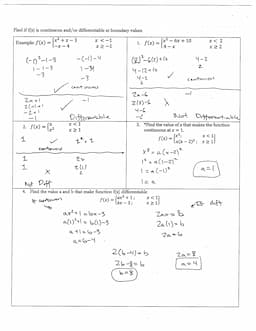 Find if f(x) is continuous and/or differentiable at boundary values.
Example: f(x) = { x² + x − 3   x < −1
−x − 4   x ≥ −1
(-1)²-1-3   -(-1)-4
1-1-3   1-4
-3   -3
✓ continuous
2x+1   -1
2(-1)+1
-2+1
-1   Differentiable
1. f(x) = { x² − 6x + 10   x < 2
4 − x   x ≥ 2
(2)²-6(2)+10   4-2
4-12+10   2
4-2
2   continuous
2x-6   -1
2(2)-6   X
4-6
-2   Not Differentiable
2. f(x) = { x   x < 1
x²   x ≥ 1
1   1² = 1
continuous
1   2x
1   2(1)
X   2
Not Diff
3. *Find the value of a that makes the function
continuous at x = 1.
f(x) = { x²,   x < 1
a(x − 2)²,   x ≥ 1
x² = a(x-2)²
1² = a(1-2)²
1 = a(-1)²
1 = a
a=1
4. Find the value a and b that make function f(x) differentiable
f(x) = { ax² + 1;   x < 1
bx − 3;   x ≥ 1
if continuous
ax²+1 = bx-3
a(1)²+1 = b(1)-3
a+1 = b-3
a = b-4
if diff
2ax = b
2a(1) = b
2a = b
2(b-4) = b
2b-8 = b
b=8
2a=8
a=4